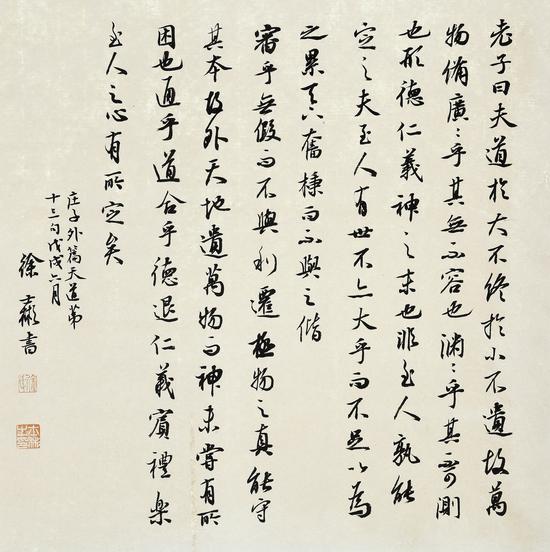 老子曰夫道於大不終於小不遺故萬
物備廣〻乎其無不容也淵〻乎其不可測
也形德仁義神之末也非至人孰能
定之夫至人有世不亦大乎而不足以為
之累天下奮棅而不與之偕
審乎無假而不與利遷極物之真能守
其本故外天地遺萬物而神未嘗有所
困也通乎道合乎德退仁義賓禮樂
至人之心有所定矣
庄子外篇天道第
十三句戊戌六月
徐書